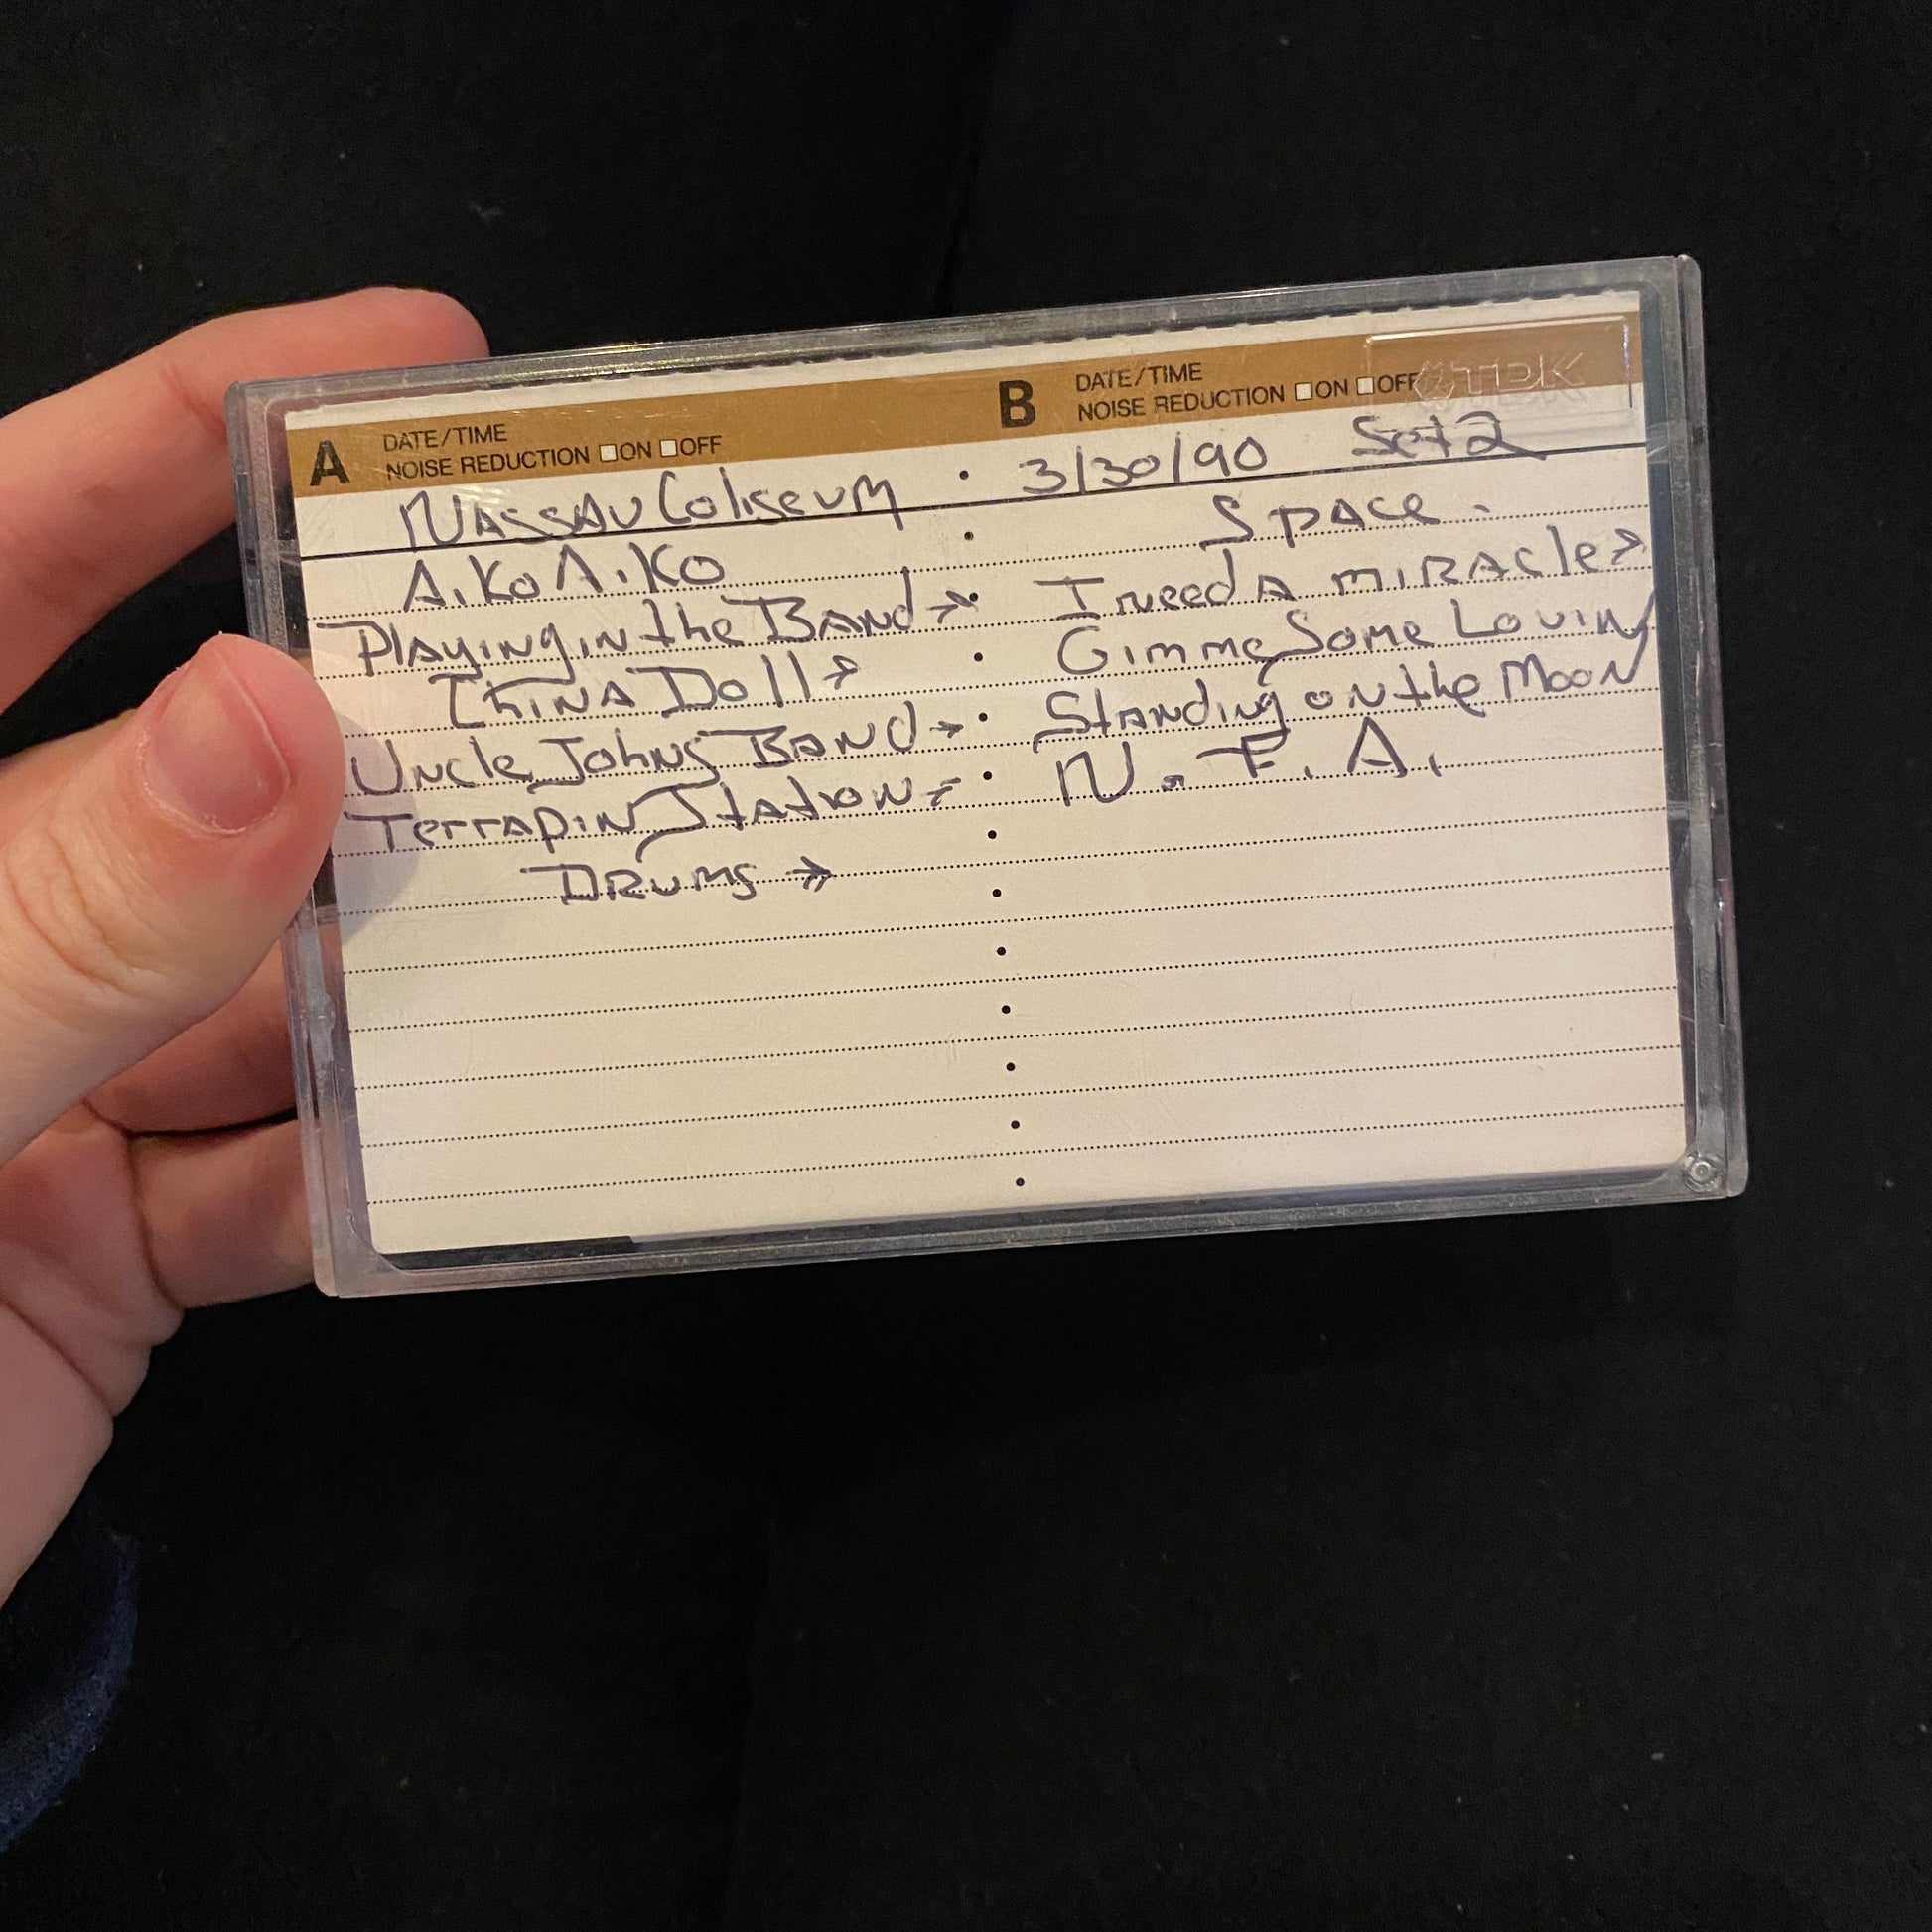 A DATE/TIME
NOISE REDUCTION □ON □OFF
Nassau Coliseum
A.Ko A.Ko
Playing in the Band →
China Doll →
Uncle Johns Band →
Terrapin Station →
Drums →
B DATE/TIME
NOISE REDUCTION □ON □OFF
TDK
3/30/90 Set 2
Space
I need A miRAcle →
Gimme Some Lovin
Standing on the Moon
N. F. A.